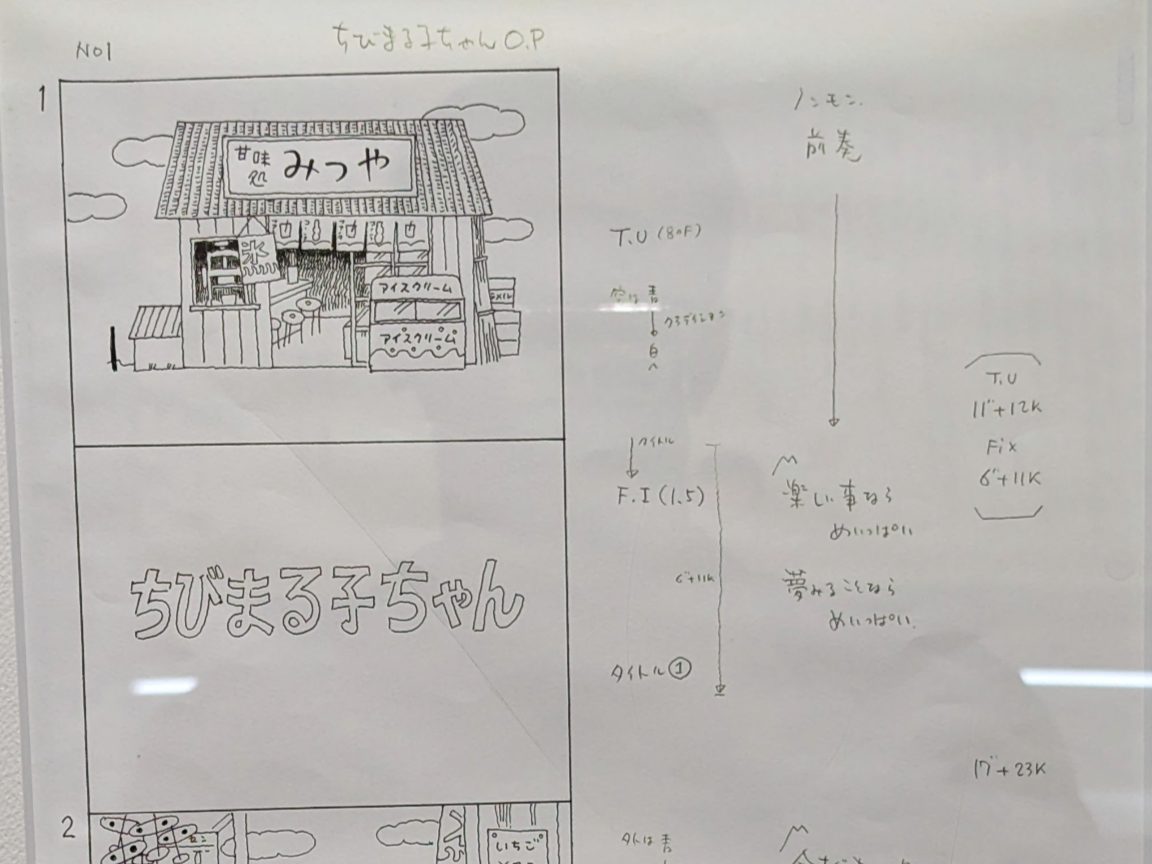 No1
ちびまる子ちゃん O.P
1
甘味処
みつや
氷
アイスクリーム
アイスクリーム
ノンモン.
前奏
T.U (80F)
空は青
白へ
タイトル
F.I (1.5)
6"+11K
タイトル①
楽しい事なら
めいっぱい
夢みることなら
めいっぱい.
T.U
11"+12K
Fix
6"+11K
17"+23K
ちびまる子ちゃん
2
いちご